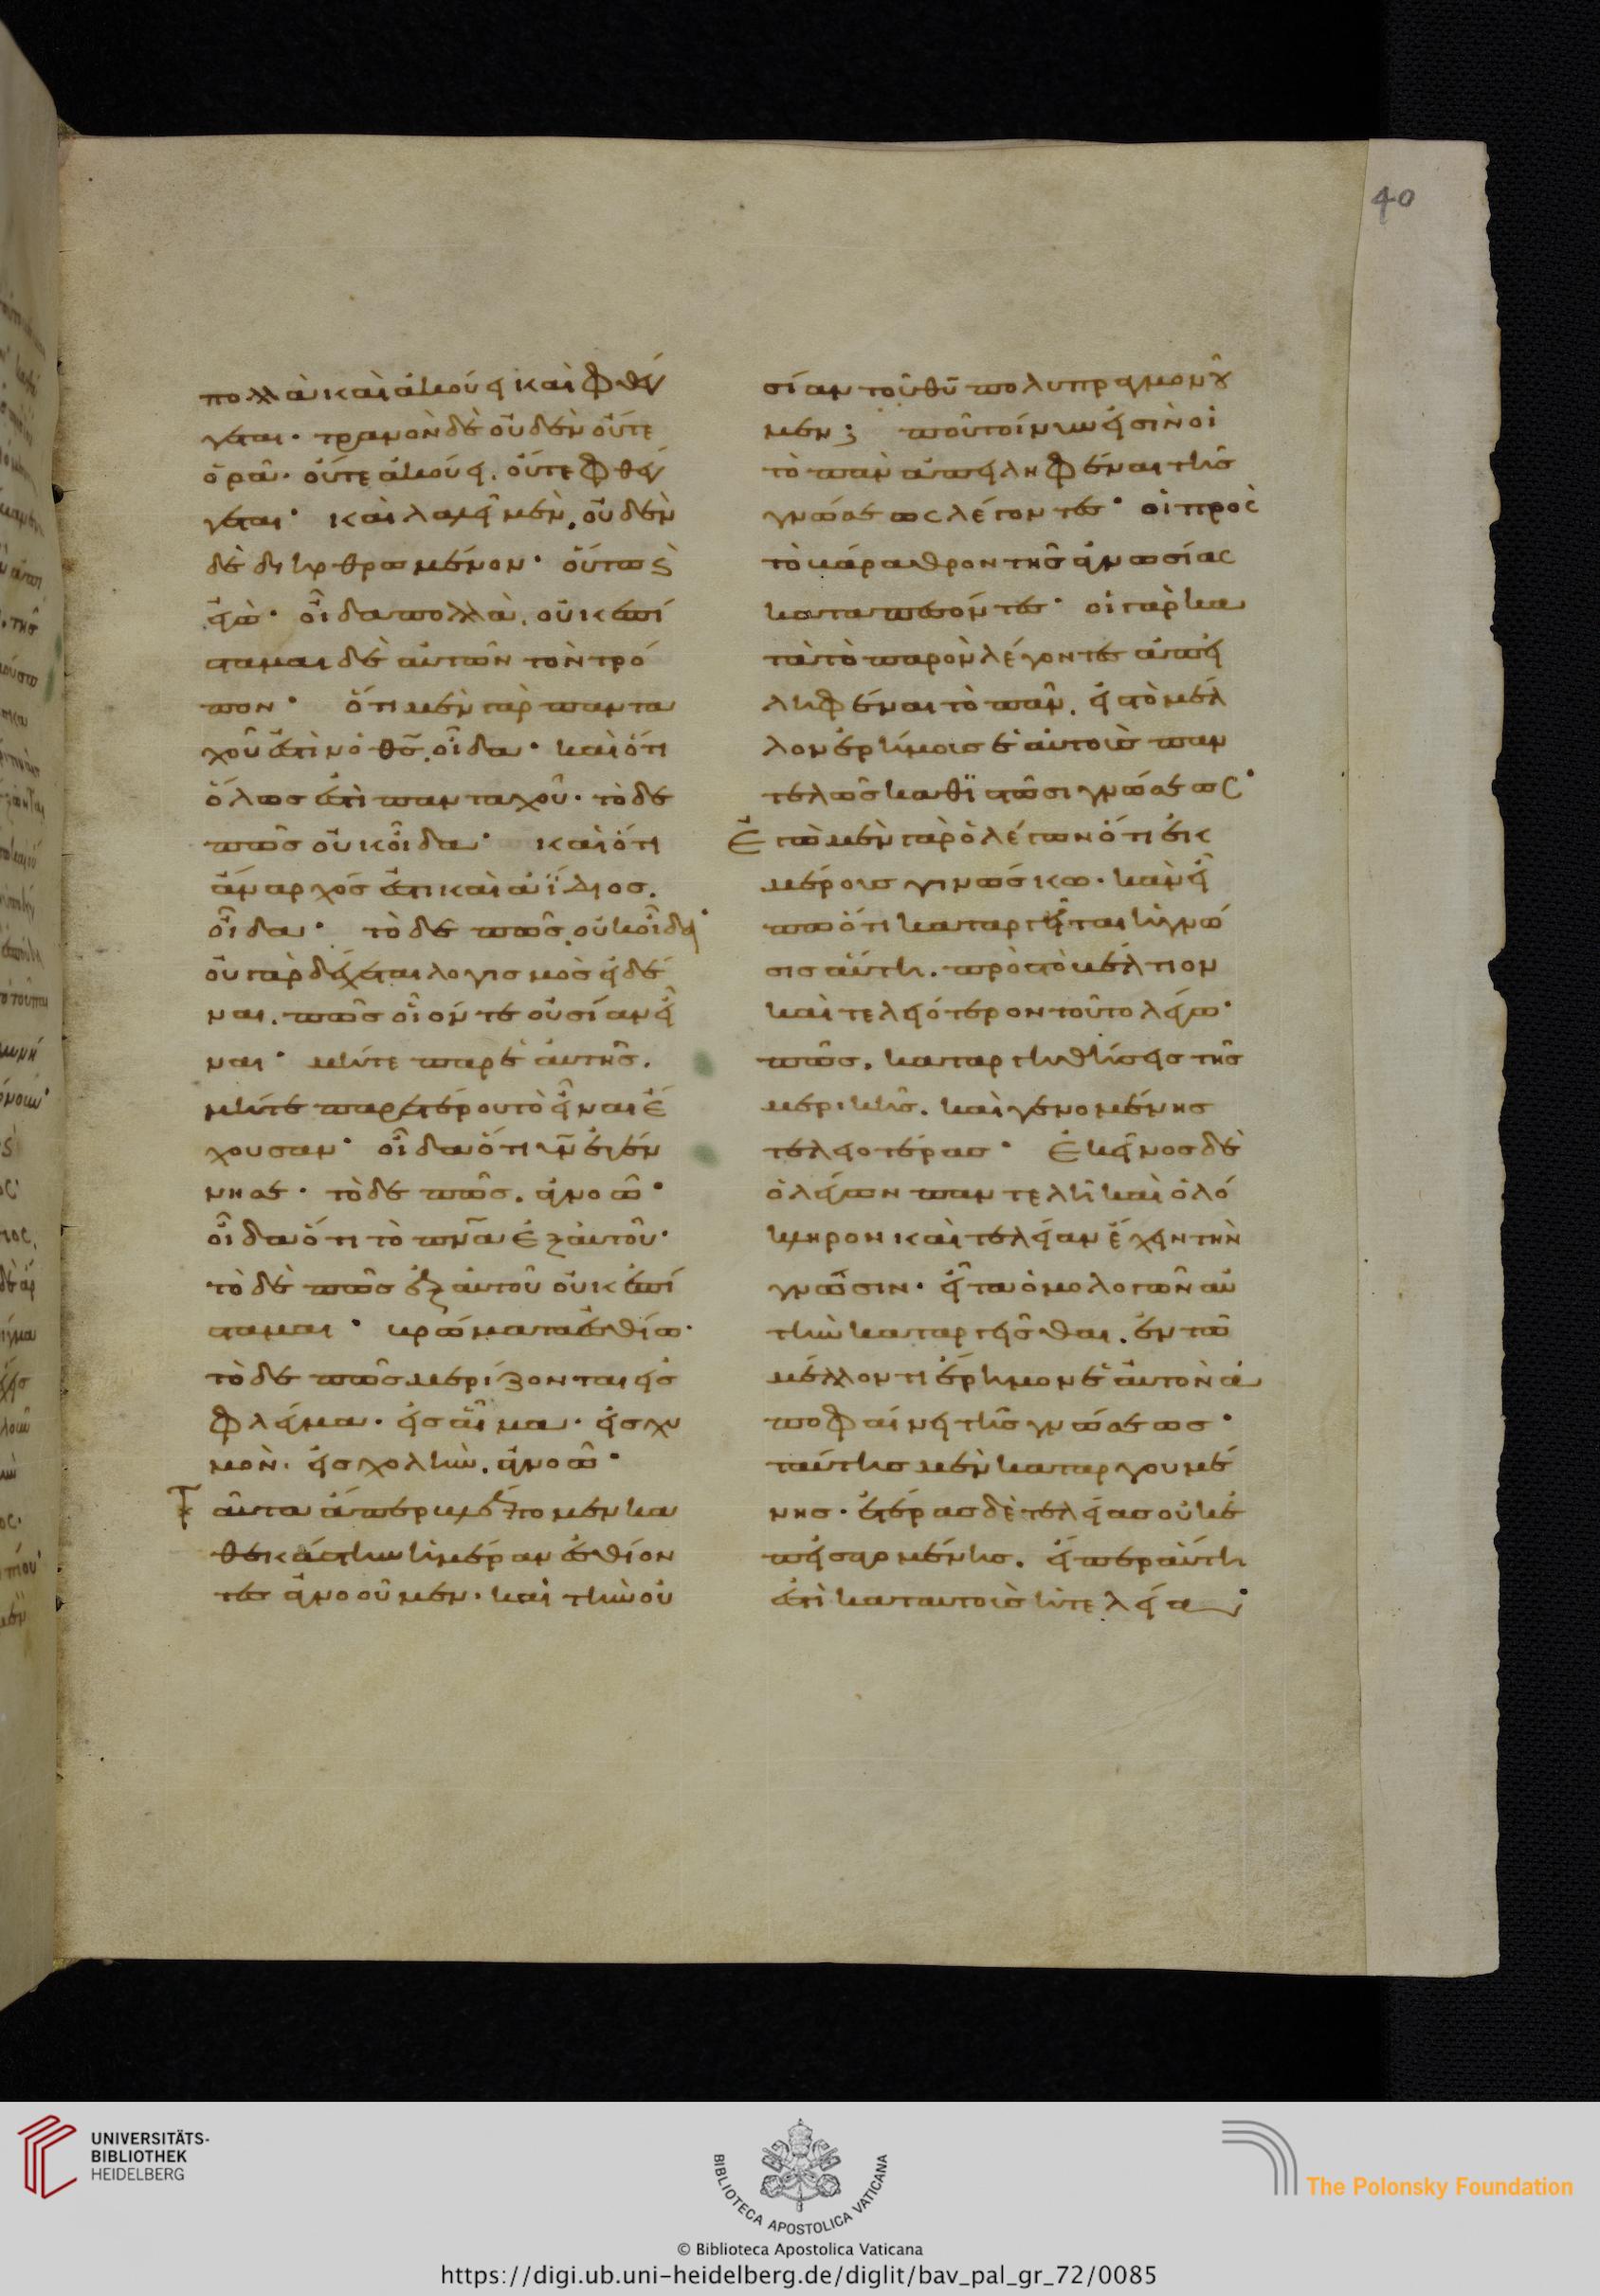 πολλὰ καὶ ἀκούει καὶ φθέγ
γεται· τρανὸν δὲ οὐδὲν οὔτε
ὁρᾶ· οὔτε ἀκούει. οὔτε φθέγ
γεται· καὶ λαλεῖ μὲν, οὐδὲν
δὲ διηρθρωμένον· οὕτως
ἐγὼ· οἶδα πολλὰ, οὐκ ἐπί
σταμαι δὲ αὐτῶν τὸν τρό
πον· ὅτι μὲν γὰρ παντα
χοῦ ἐστὶν ὁ θς̅, οἶδα· καὶ ὅτι
ὅλως ἐστὶ πανταχοῦ· τὸ δὲ
πῶς οὐκ οἶδα· καὶ ὅτι
ἄναρχός ἐστι καὶ ἀΐδιος.
οἶδα· τὸ δὲ πῶς, οὐκ οἶδα·
οὐ γὰρ δέχεται λογισμὸς εἰδέ
ναι, πῶς οἷόν τε οὐσίαν εἶ
ναι· μήτε παρ' ἑαυτῆς.
μήτε παρ' ἑτέρου τὸ εἶναι ἔ
χουσαν· οἶδα ὅτι υν̅ ἐγέν
νησε· τὸ δὲ πῶς, ἀγνοῶ·
οἶδα ὅτι τὸ πνα̅ ἐξ αὐτοῦ·
τὸ δὲ πῶς ἐξ αὐτοῦ οὐκ ἐπί
σταμαι· βρώματα ἐσθίω·
τὸ δὲ πῶς μερίζονται εἰς
φλέγμα· εἰς αἷμα· εἰς χυ
μὸν· εἰς χολὴν, ἀγνοῶ·
Ταῦτα ἅπερ βλέπομεν κα
θεκάστην ἡμέραν ἐσθίον
τες ἀγνοοῦμεν· καὶ τὴν οὐ
σίαν τοῦ θυ̅ πολυπραγμονοῦ
μεν; ποῦ τοίνυν εἰσὶν οἱ
τὸ πᾶν ἀπειληφέναι τῆς
γνώσεως λέγοντες· οἱ πρὸς
τὸ βάραθρον τῆς ἀγνωσίας
καταπεσόντες· οἱ γὰρ κα
τὰ τὸ παρὸν λέγοντες ἀπει
ληφέναι τὸ πᾶν, εἰς τὸ μέλ
λον ἐρήμους ἑαυτοὺς παν
τελῶς καθιστῶσι γνώσεως·
Ἐγὼ μὲν γὰρ ὁ λέγων ὅτι ἐκ
μέρους γινώσκω· κἂν εἴ
πω ὅτι καταργεῖται ἡ γνῶ
σις αὕτη. πρὸς τὸ βέλτιον
καὶ τελειότερον τοῦτο λέγω·
πῶς, καταργηθείσης τῆς
μερικῆς. καὶ γενομένης
τελειοτέρας· Ἐκεῖνος δὲ
ὁ λέγων παντελῆ καὶ ὁλό
κληρον καὶ τελείαν ἔχειν τὴν
γνῶσιν· εἶτα ὁμολογῶν αὐ
τὴν καταργεῖσθαι. ἐν τῶ
μέλλοντι ἔρημον ἑαυτὸν ἀ
ποφαίνει τῆς γνώσεως·
ταύτης μὲν καταργουμέ
νης· ἑτέρας δὲ τελείας οὐκ ἐ
πεισαγομένης. εἴπερ αὕτη
ἐστὶ κατ' αὐτοὺς ἡ τελεία·
40
UNIVERSITÄTS-
BIBLIOTHEK
HEIDELBERG
BIBLIOTECA APOSTOLICA VATICANA
The Polonsky Foundation
© Biblioteca Apostolica Vaticana
https://digi.ub.uni-heidelberg.de/diglit/bav_pal_gr_72/0085